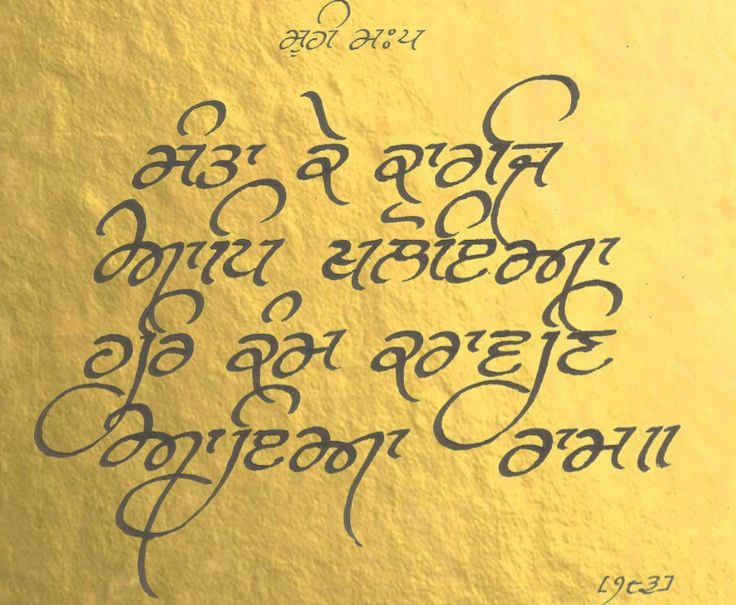 ਸੂਹੀ ਮਃ੫
ਸੰਤਾ ਕੇ ਕਾਰਜਿ
ਆਪਿ ਖਲੋਇਆ
ਹਰਿ ਕੰਮ ਕਰਾਵਣਿ
ਆਇਆ ਰਾਮ॥
[੭੮੩]